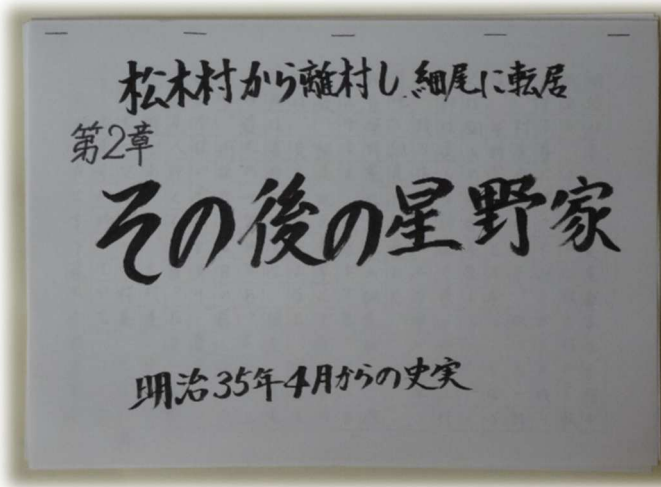 松木村から離村し、細尾に転居
第2章
その後の星野家
明治35年4月からの史実